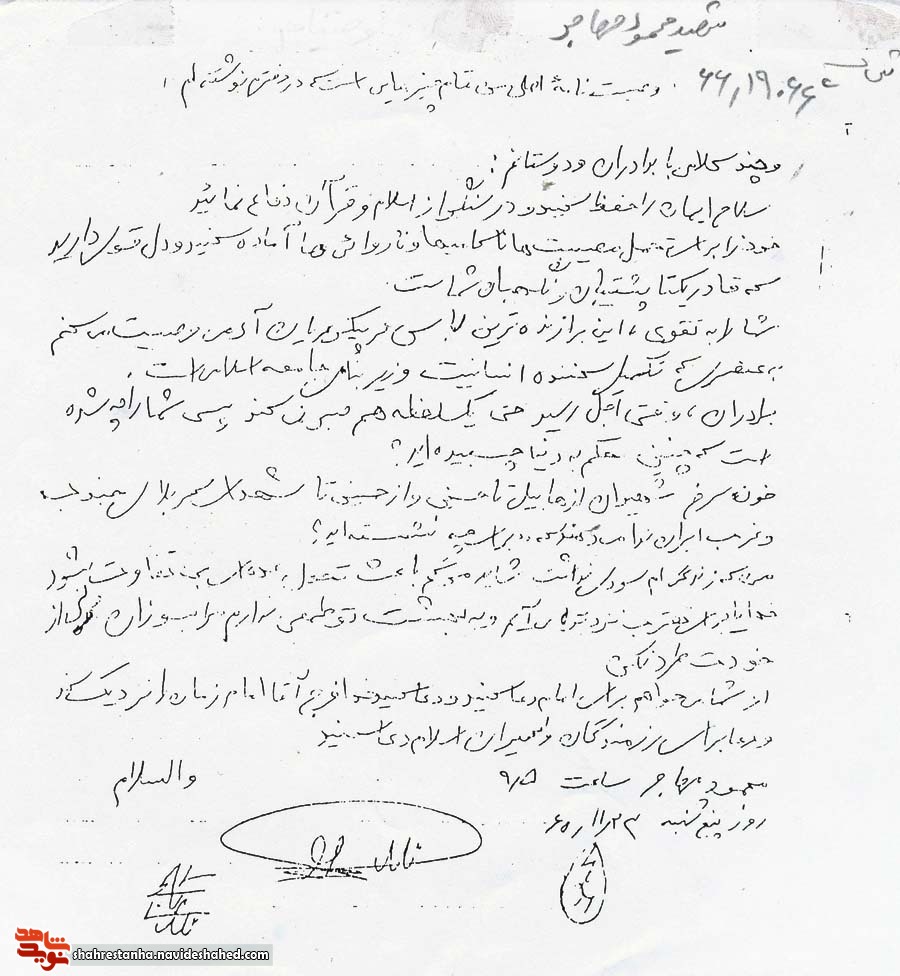 شهید محمود مهاجر
وصیت نامهٔ اصلی من تمام چیزهایی است که در دفترم نوشته ام
و چند کلامی با برادران و دوستانم:
سلاح ایمان را حفظ کنید و در سنگر از اسلام و قرآن دفاع نمائید
خود را برای تحمل مصیبت ها ناکامیها و ناروائی ها آماده کنید و دل قوی دارید
که قادر یکتا پشتیبان و نگاهبان شماست
شما را به تقوی، این برازنده ترین لباس بر پیکر عریان آدمی وصیت می کنم
به عنصری که تکمیل کننده انسانیت و زیر بنای جامعه اسلامی است.
برادران، وقتی اجل رسید حتی یک لحظه هم صبر نمی کند پس شما را چه شده
است که چنین محکم به دنیا چسبیده اید؟
خون سرخ شهیدان از هابیل تا حسین و از حسین تا شهدای کربلای جنوب
و غرب ایران ندا می دهند که برای چه نشسته اید؟
من که زندگی ام سودی نداشت شاید مرگم باعث تحولی عده ای بی تفاوت بشود
خدایا برای تقرب نزد تو می آیم و به بهشت تو طمعی ندارم مرا بسوزان ولی از
خودت طردم نکن
از شما می خواهم برای امام دعا کنید و دعا کنید خدا فرج آقا امام زمان را نزدیک کند
و دعا برای رزمندگان و اسیران اسلام دعا کنید
محمود مهاجر ساعت ۹/۵
والسلام
روز پنج شنبه
نوید شاهد
shahrestanha.navideshahed.com